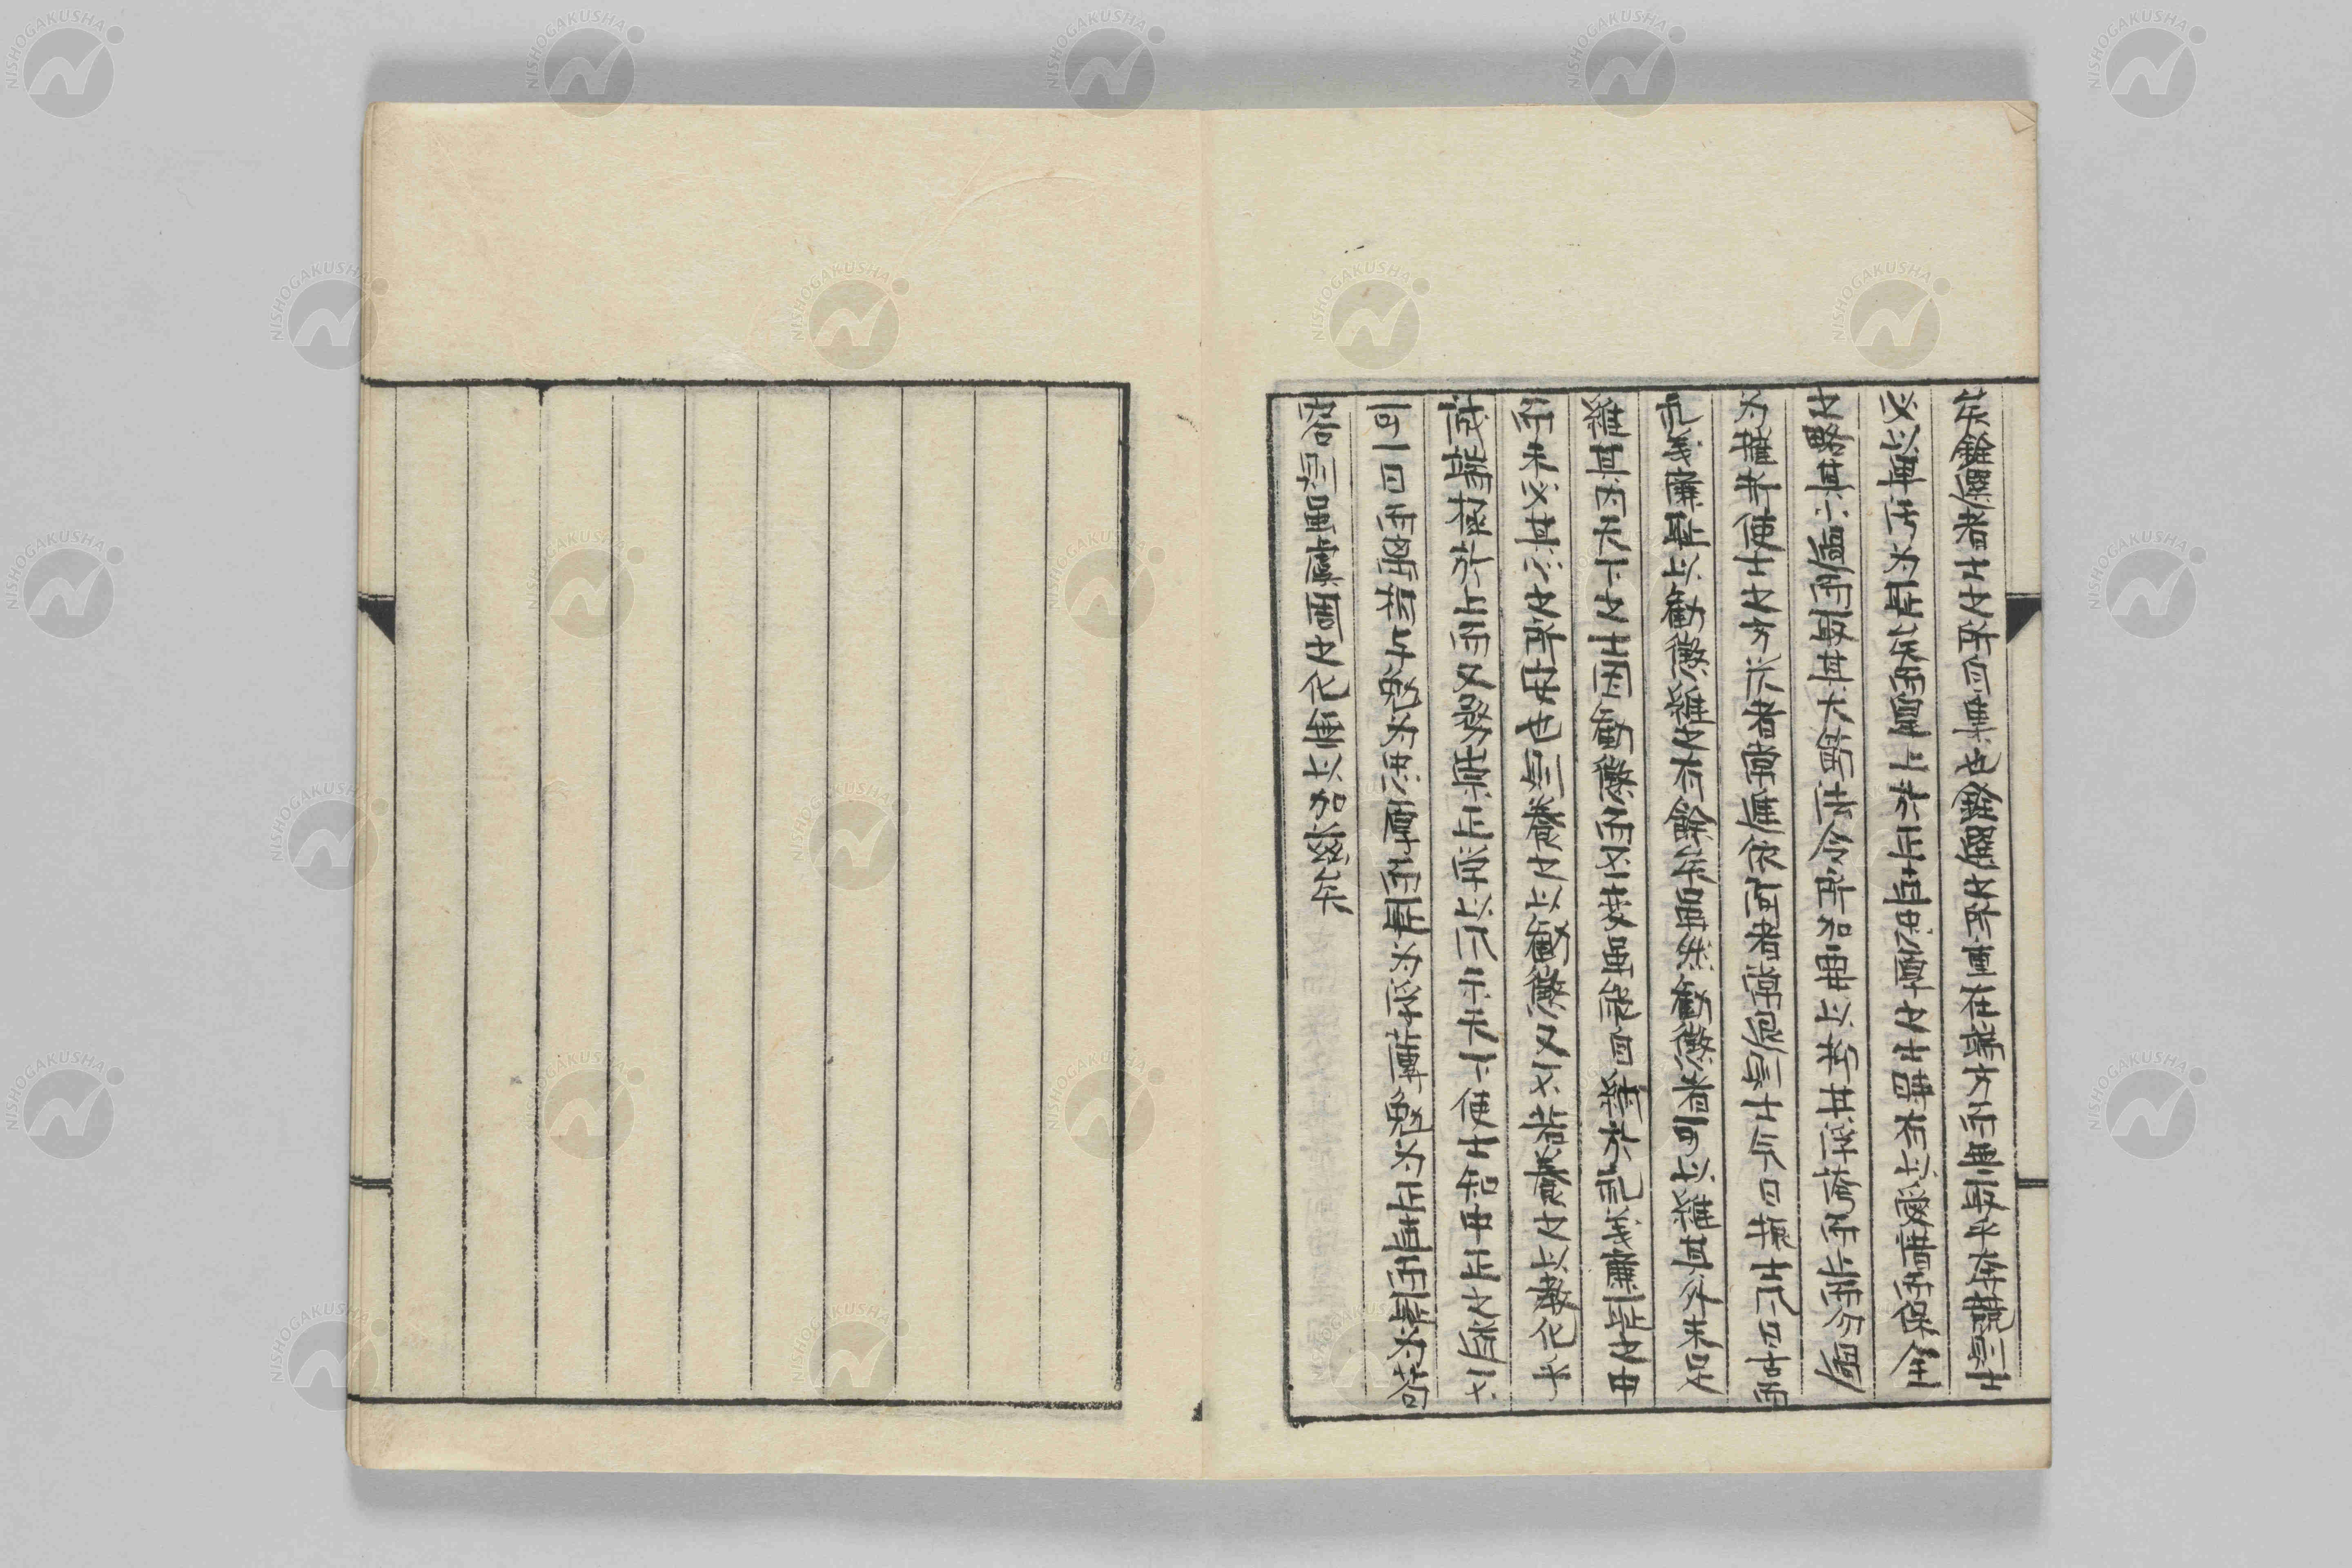 矣銓選者士之所自集也銓選之所重在端方而無取乎奔競則士
必以無 为恥矣而 上於上 忠厚之士 有以愛惜而保全
之略其小過而取其大節法令所加毋以 其浮 而勿過
为摧折使士之方正者常進依阿者常退則士气日振士气日 而
礼義廉耻以勸懲維之有餘矣雖然勸懲者可以維其外未足
維其内天下之士因勸懲而不 能自繩於礼義廉耻之中
而未必其心之所安也則養之以勸懲又不若養之以教化乎
誠 極於上而又務崇正学以示天下使士知中正之道不
可一日而離相与勉为忠厚而恥为浮薄勉为正直而羞为苟
容則唐虞周之化無以加茲矣
NISHOGAKUSHA